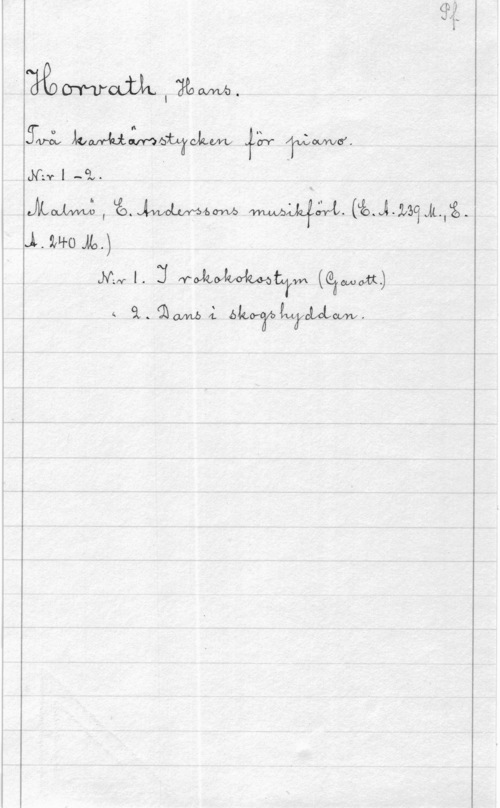 Pf
Horvath, Hans.
Två karktärsstycken för piano.
N:r 1-2.
Malmö, E. Anderssons musikförl. (E.A.239 M., E.
A. 240 M.)
N:r 1. I rokokokostym (Gavott.)
" 2. Dans i skogshyddan.